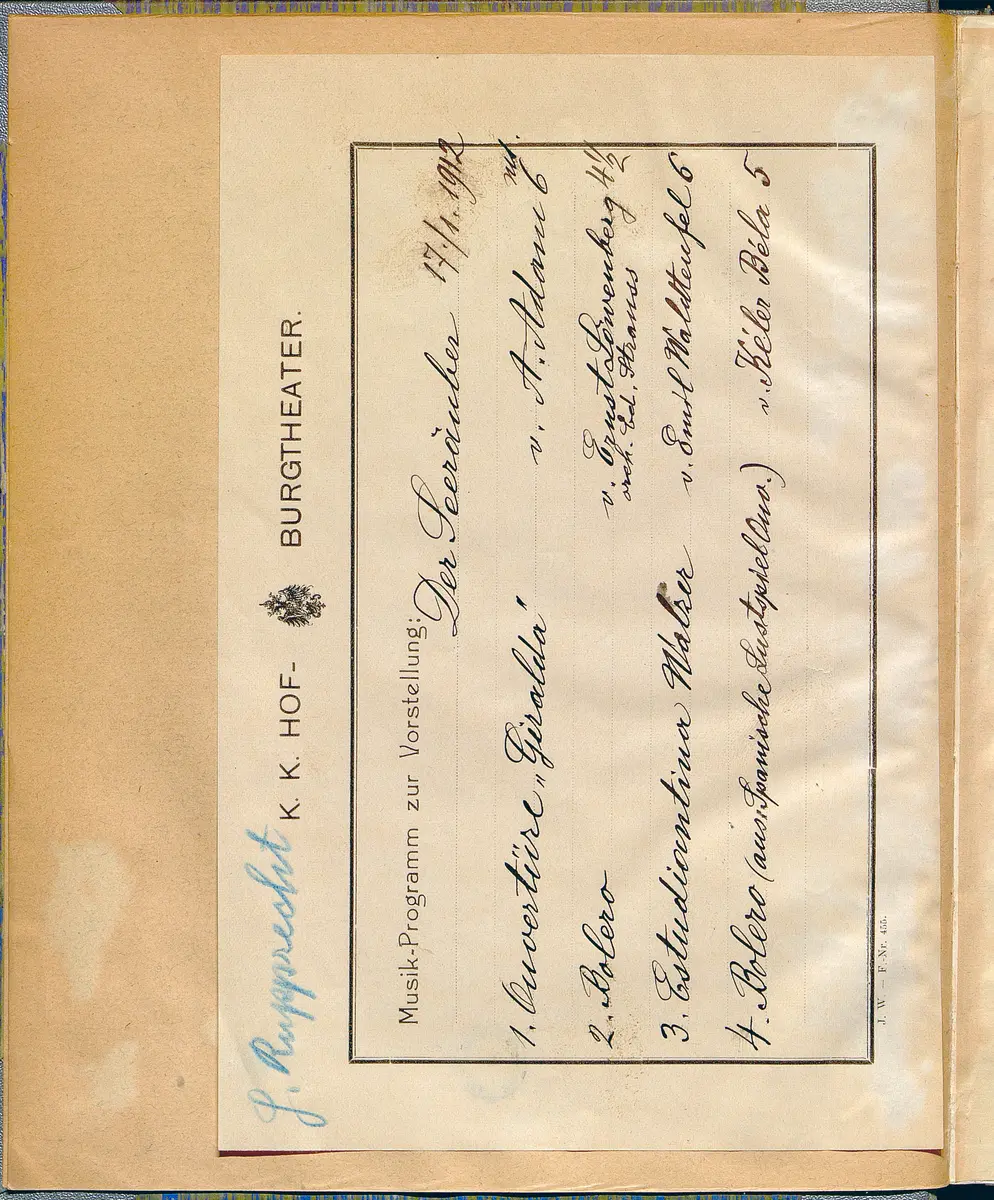 J. Rupprecht
K. K. HOF- BURGTHEATER.
Musik-Programm zur Vorstellung:
Der Seeräuber 17./1. 1912
1. Ouvertüre „Giralda" v. A. Adam 6
2. Bolero v. Ernst Löwenberg 4½
orch. Ed. Strauss
3. Estudiantina Walzer v. Emil Waldteufel 6
4. Bolero (aus: Spanische Lustspiel Ouv.) v. Kéler Béla 5
J. W. — F.-Nr. 455.